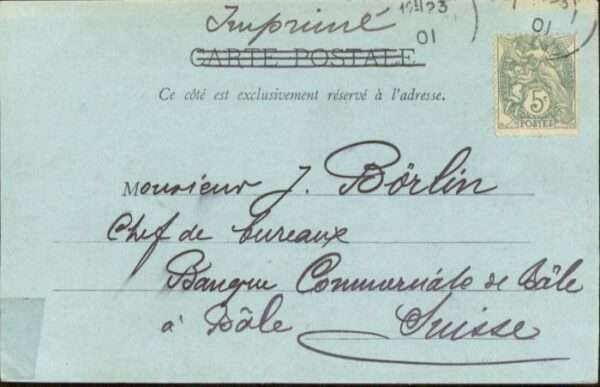 Imprimé
CARTE POSTALE
Ce côté est exclusivement réservé à l'adresse.
5c
POSTES
01
01
Monsieur J. Börlin
Chef de bureaux
Banque Commerciale de Bâle
à Bâle Suisse